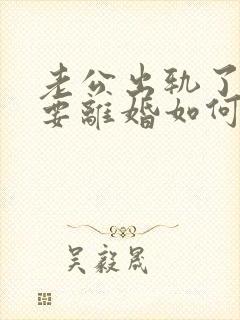 老公出轨了
要離婚如何
吴毅晟